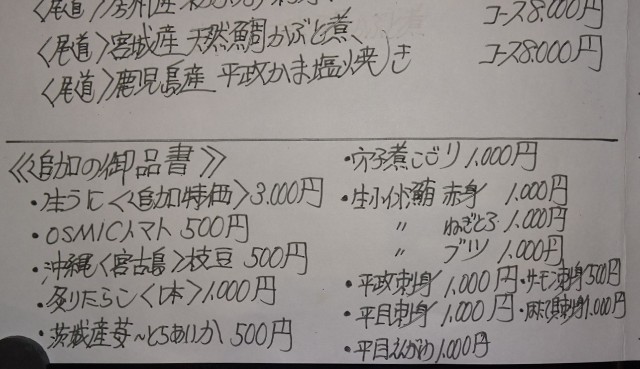 コース8.000円
〈尾道〉宮城産 天然鯛かぶと煮、 コース8.000円
〈尾道〉鹿児島産 平政かま塩焼き
《追加の御品書》
・生うに〈追加特価〉3.000円
・OSMICトマト 500円
・沖縄〈宮古島〉枝豆 500円
・炙りたらこ〈1本〉1.000円
・茨城産苺~とちあいか 500円
・穴子煮こごり 1.000円
・生インド鮪 赤身 1.000円
〃 ねぎとろ 1.000円
〃 ブツ 1.000円
・平政刺身 1.000円 ・サーモン刺身500円
・平目刺身 1.000円 ・刺身1.000円
・平目えんがわ 1.000円